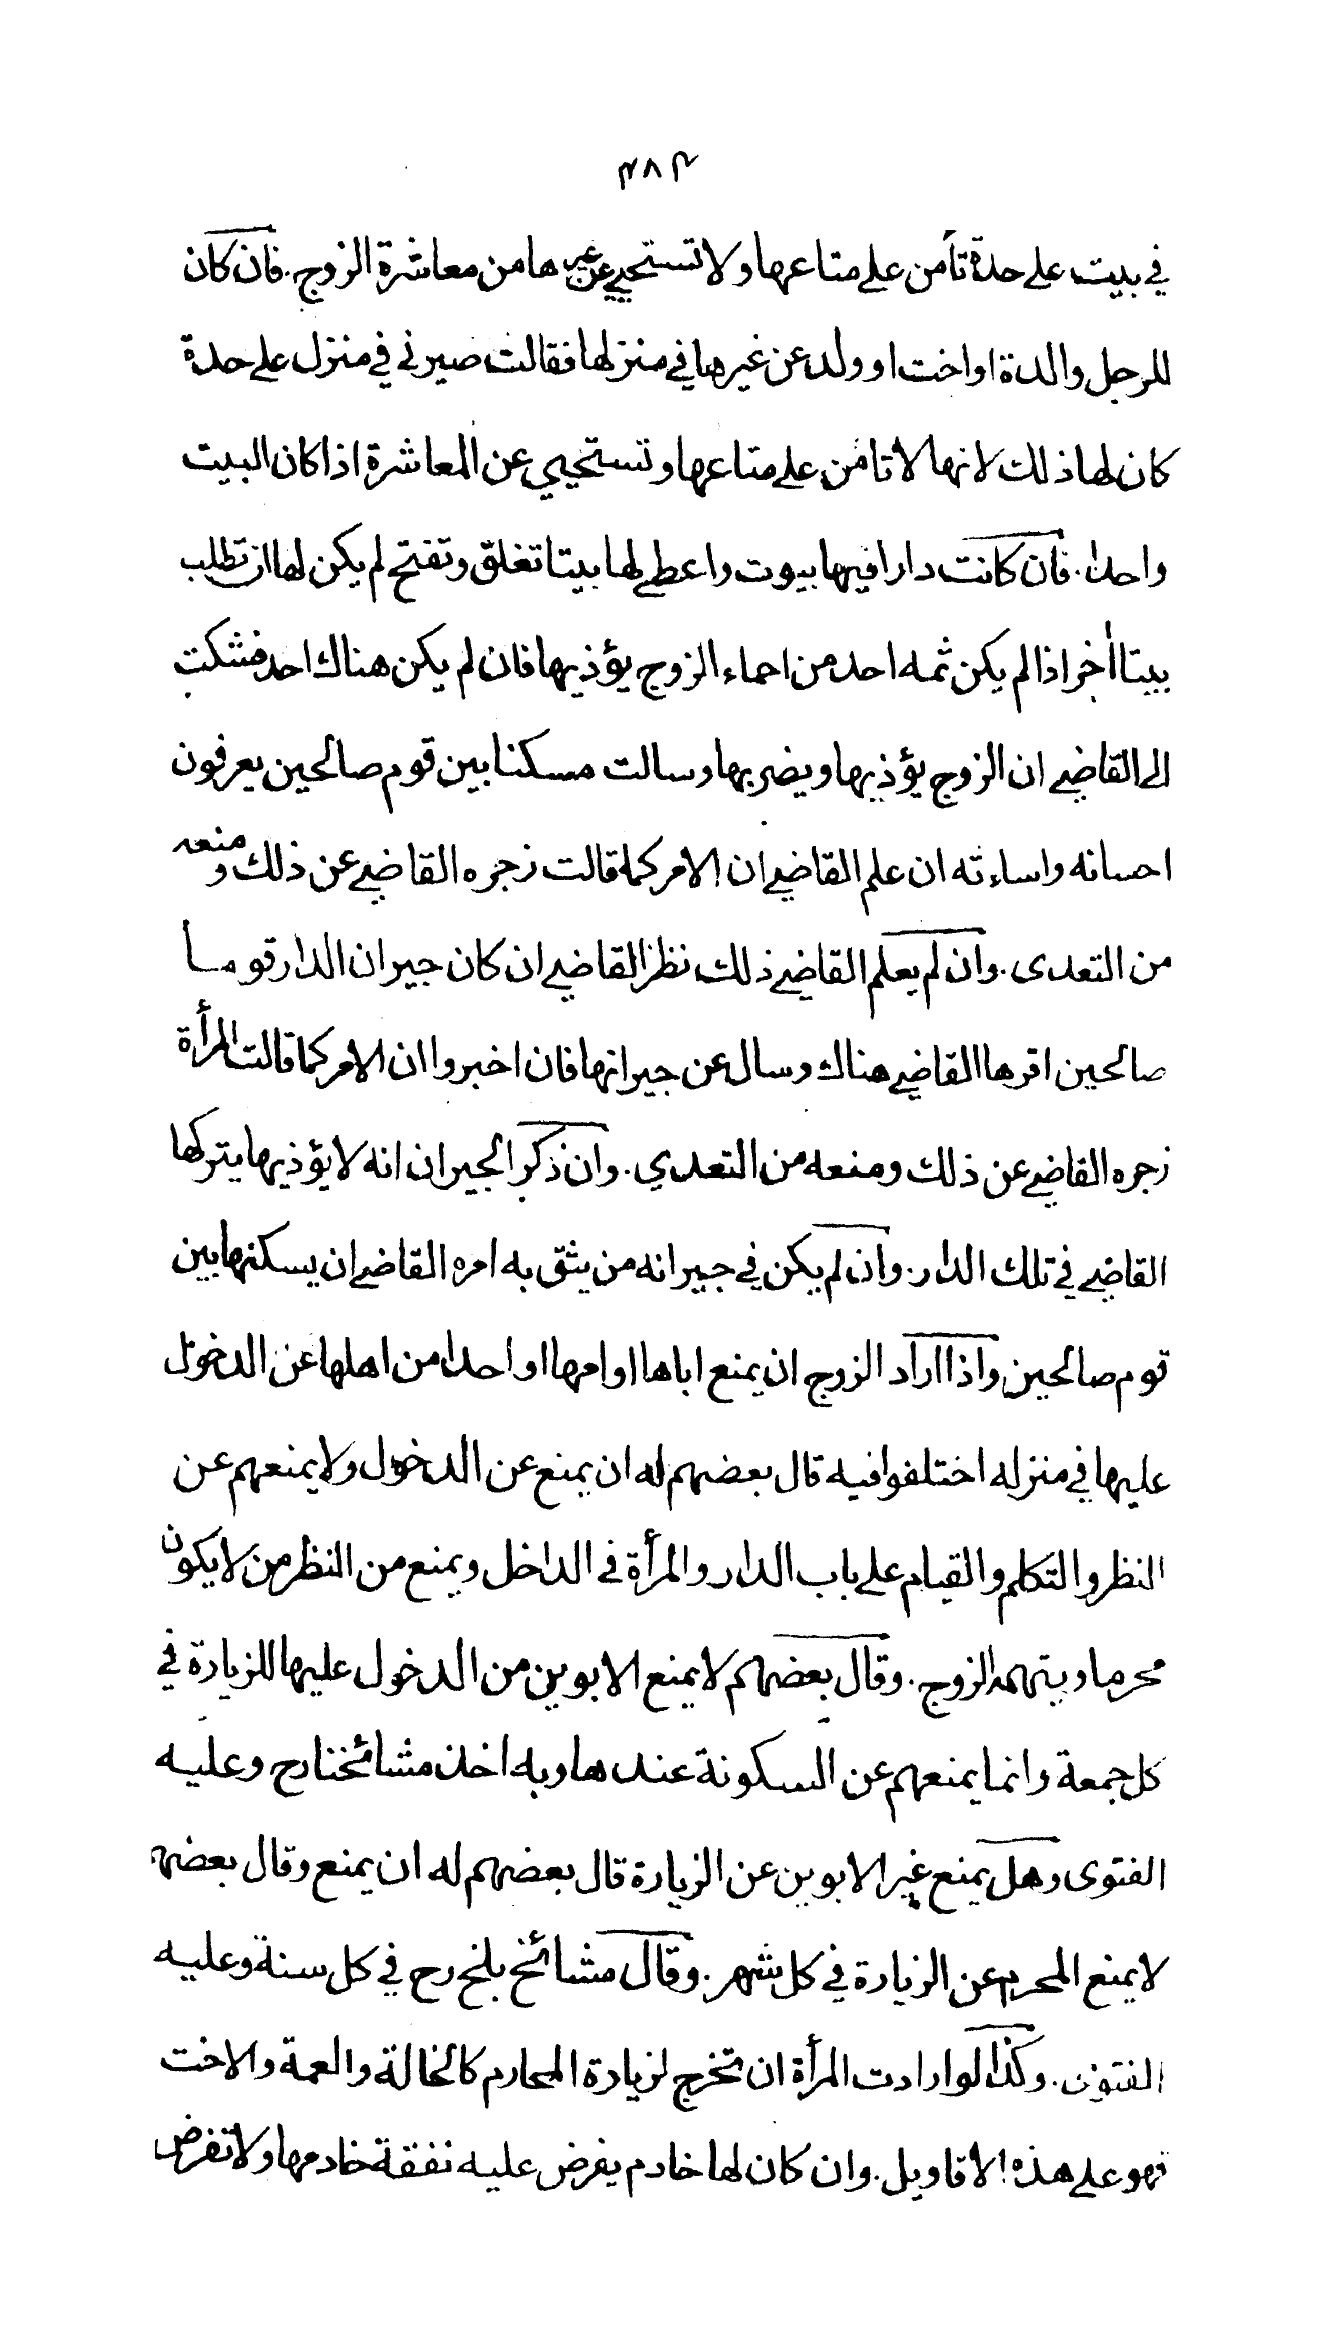 ٤٨٤
في بيت على حدة تأمن على متاعها ولا تستحيي عن غيرها من معاشرة الزوج. فان كان
للرجل والدة او اخت او ولد عن غيرها في منزلها فقالت صيرني في منزل على حدة
كان لها ذلك لانها لا تامن على متاعها وتستحيي عن المعاشرة اذا كان البيت
واحدا. فان كانت دارا فيها بيوت واعطى لها بيتا تغلق وتفتح لم يكن لها ان تطلب
بيتا أخر اذا لم يكن ثمه احد من احماء الزوج يؤذيها فان لم يكن هناك احد فشكت
الى القاضي ان الزوج يؤذيها ويضربها وسالت مسكنا بين قوم صالحين يعرفون
احسانه واساءته ان علم القاضي ان الامر كما قالت زجره القاضي عن ذلك ومنعه
من التعدى. وان لم يعلم القاضي ذلك نظر القاضي ان كان جيران الدار قوما
صالحين اقرها القاضي هناك وسال عن جيرانها فان اخبروا ان الامر كما قالت المرأة
زجره القاضي عن ذلك ومنعه من التعدي. وان ذكر الجيران انه لا يؤذيها يتركها
القاضي في تلك الدار. وان لم يكن في جيرانه من يثق به امره القاضي ان يسكنها بين
قوم صالحين واذا اراد الزوج ان يمنع اباها او امها او احدا من اهلها عن الدخول
عليها في منزله اختلفوا فيه قال بعضهم له ان يمنع عن الدخول ولا يمنعهم عن
النظر والتكلم والقيام على باب الدار والمرأة في الداخل ويمنع من النظر من لا يكون
محرما ويتهمه الزوج. وقال بعضهم لا يمنع الابوين من الدخول عليها للزيارة في
كل جمعة وانما يمنعهم عن السكونة عندها وبه اخذ مشائخنا رح وعليه
الفتوى وهل يمنع غير الابوين عن الزيارة قال بعضهم له ان يمنع وقال بعضهم
لا يمنع المحرم عن الزيارة في كل شهر. وقال مشائخ بلخ رح في كل سنة وعليه
الفتوى. وكذا لو ارادت المرأة ان تخرج لزيارة المحارم كالخالة والعمة والاخت
فهو على هذه الاقاويل. وان كان لها خادم يفرض عليه نفقة خادمها ولا تفرض